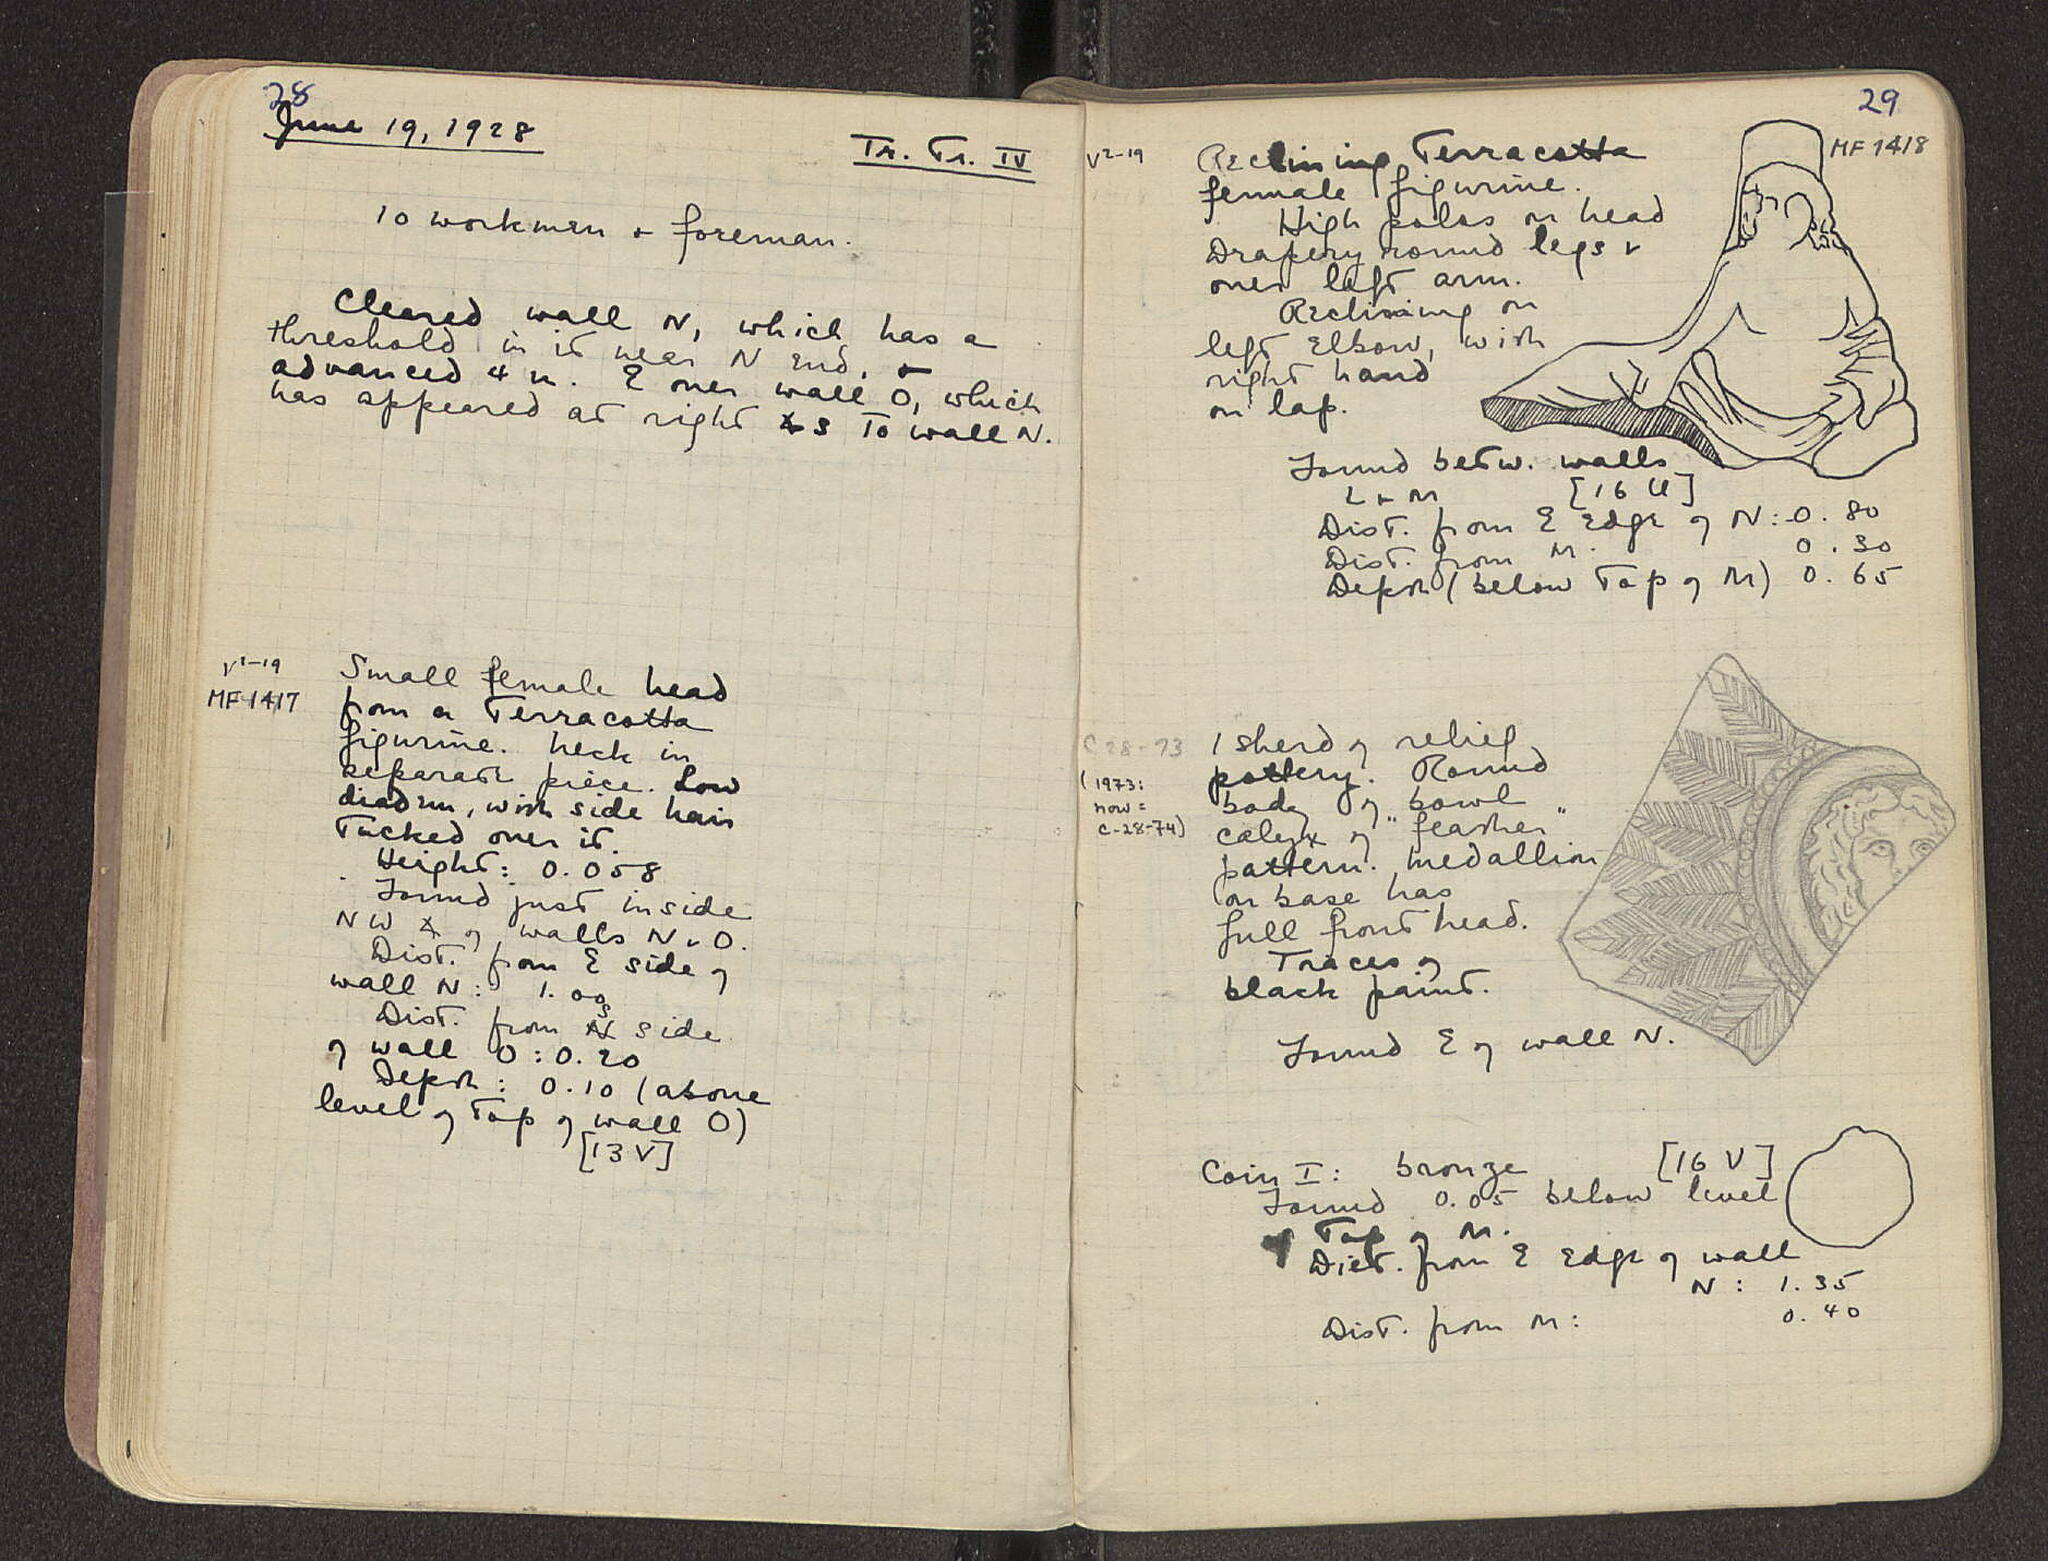 28
June 19, 1928
Tr. Tr. IV
10 workmen + foreman.
Cleared wall N, which has a
threshold in it near N end, +
advanced 4 m. E over wall O, which
has appeared at right ∡s to wall N.
V1-19
MF 1417
Small female head
from a Terracotta
figurine. Neck in
separate piece. Low
diadem, with side hair
Tucked over it.
Height: 0.058
Found just inside
NW ∡ of walls N + O.
Dist. from E side of
wall N: 1.00
Dist. from S side
of wall O: 0.20
Depth: 0.10 (above
level of Top of wall O)
[13 V]
29
V2-19
MF 1418
Reclining Terracotta
female figurine.
High polos on head
Drapery round legs +
over left arm.
Reclining on
left Elbow, with
right hand
on lap.
Found betw. walls
L + M [16 U]
Dist. from E Edge of N: 0.80
Dist. from M. 0.30
Depth (below Top of M) 0.65
C 28-73
(1973:
now =
C-28-74)
1 sherd of relief
pottery. Round
body of bowl
calyx of "feather"
pattern. Medallion
on base has
full front head.
Traces of
black paint.
Found E of wall N.
Coin I: bronze [16 V]
Found 0.05 below level
of Top of M.
Dist. from E Edge of wall
N: 1.35
Dist. from M: 0.40